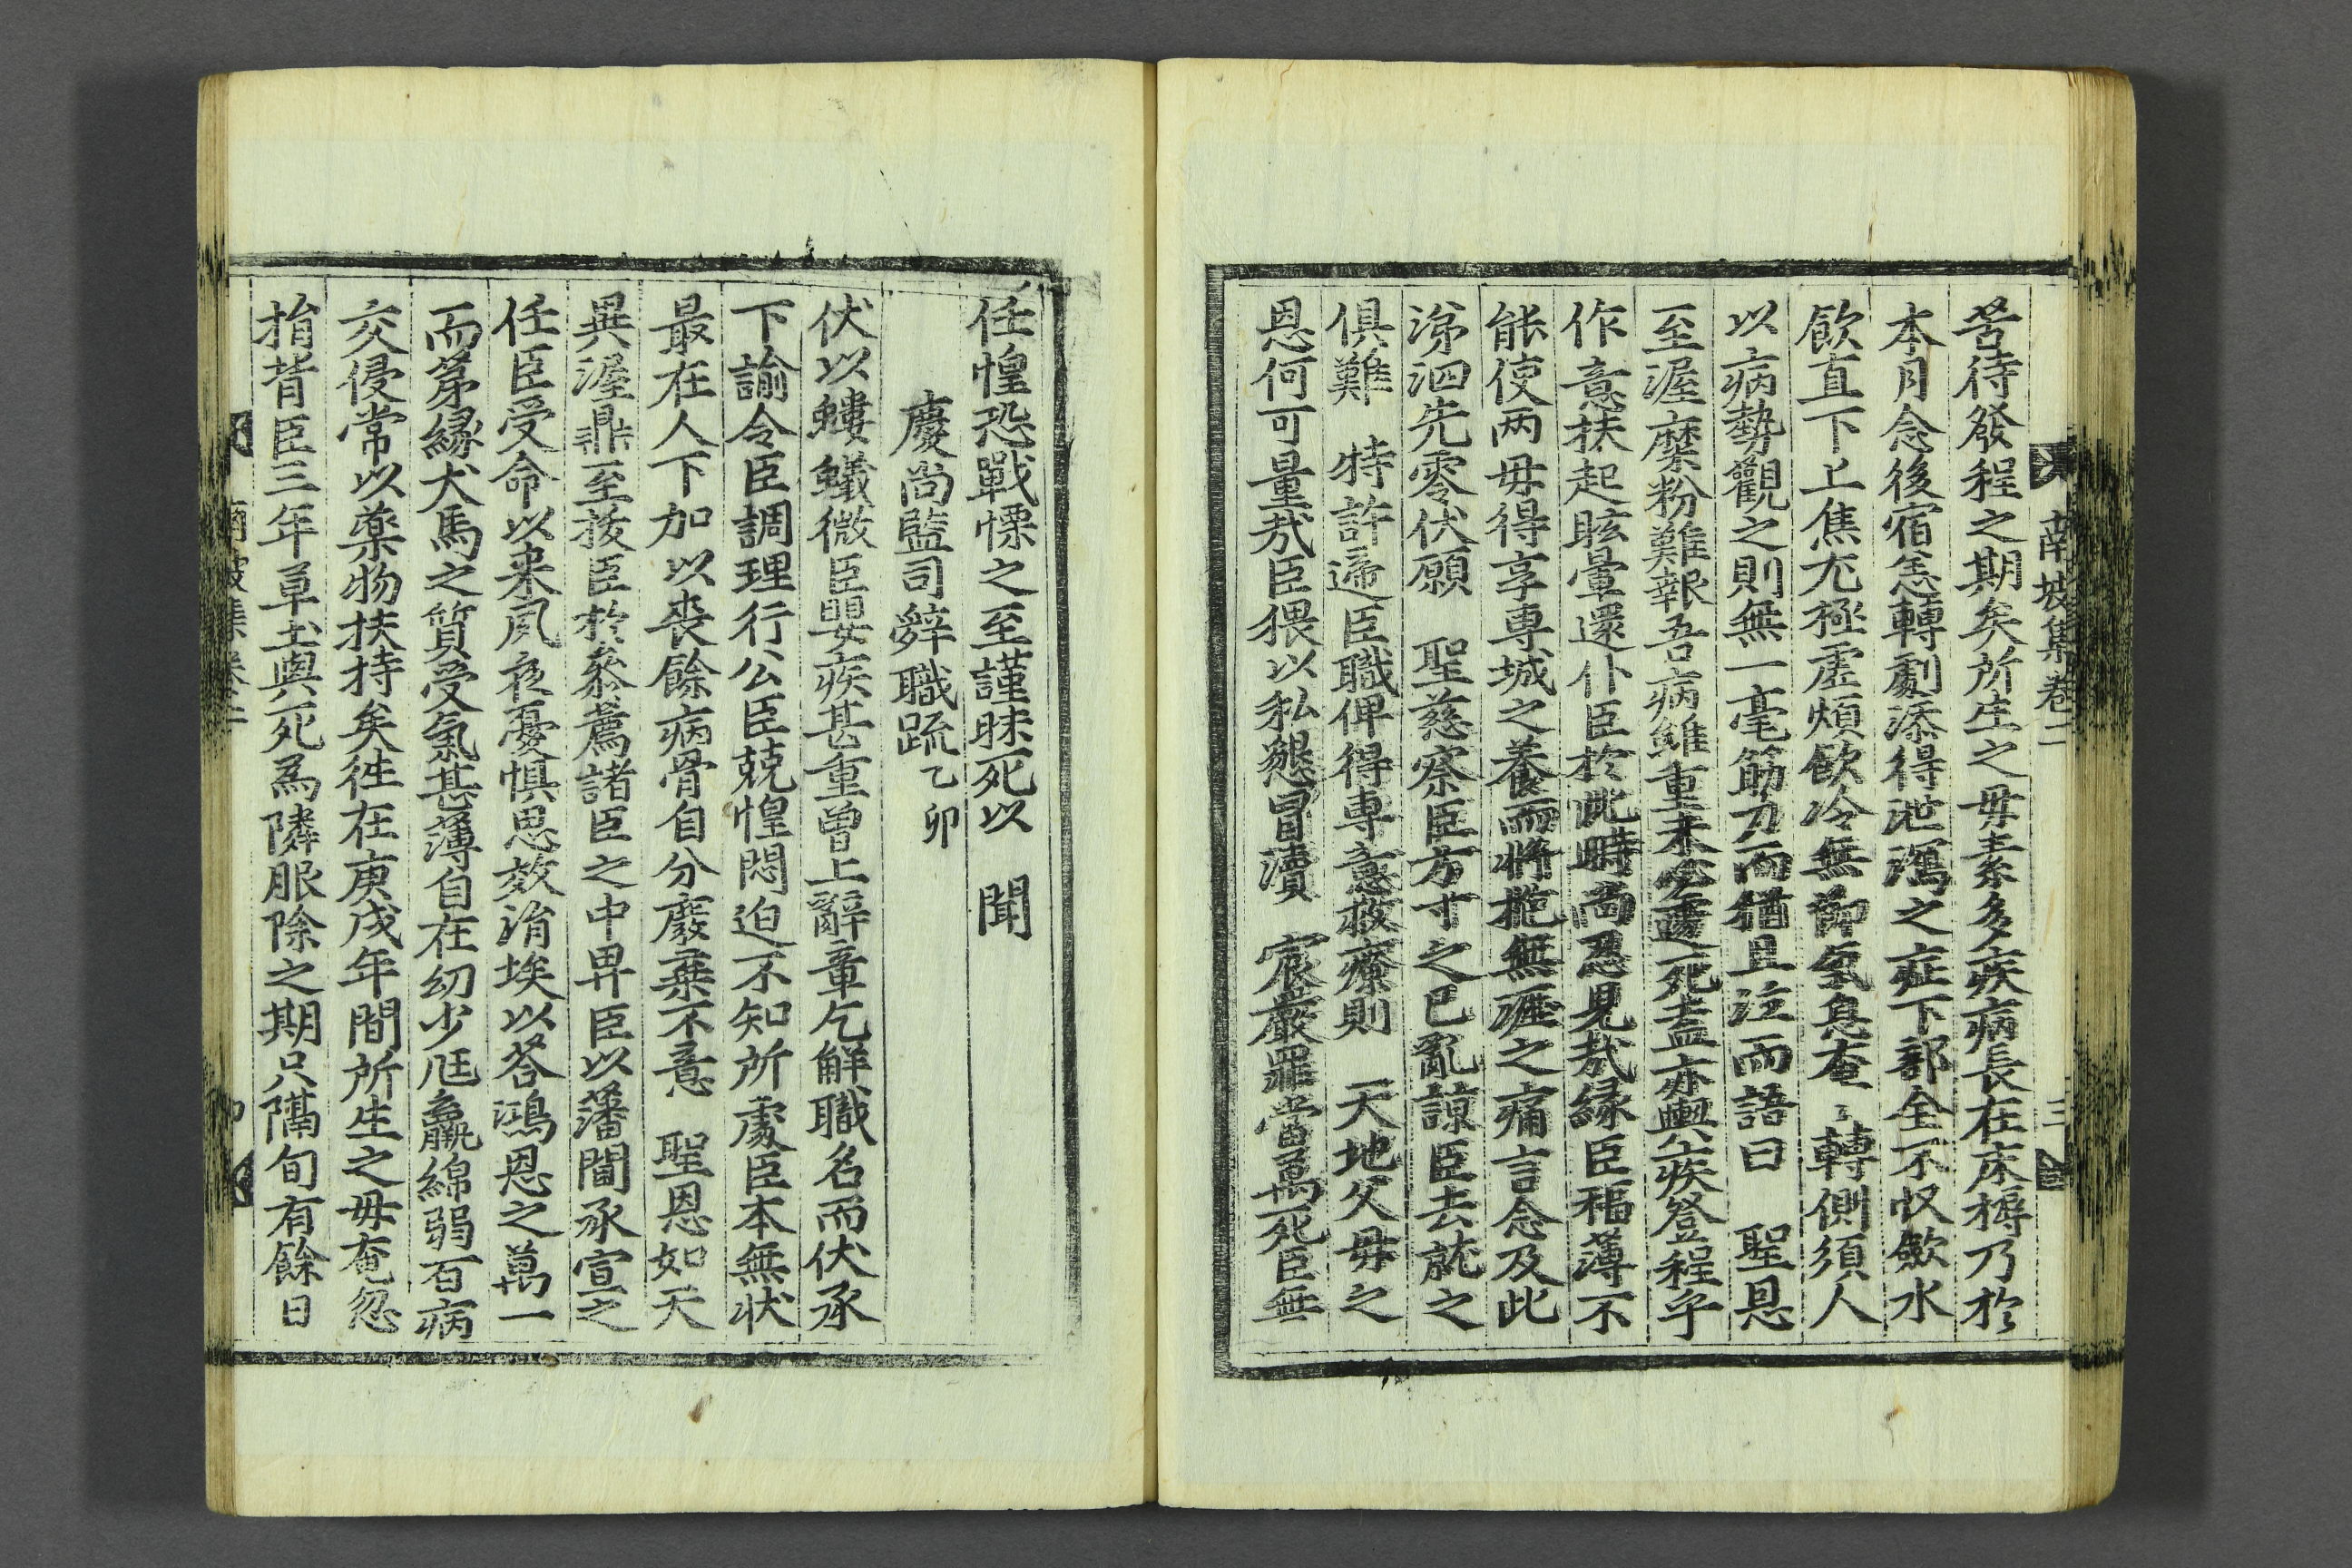 南坡集卷二 三
苦待發程之期矣所生之母素多疾病長在床褥乃於
本月念後宿恙轉劇添得泄瀉之症下部全不收歛水
飮直下上焦尤極虛煩飮冷無節氣息奄〻轉側須人
以病勢觀之則無一毫筋力而猶且泣而語曰 聖恩
至渥糜粉難報吾病雖重未必遽死盍亦輿疾登程乎
作意扶起眩暈還仆臣於此時尚忍見哉緣臣福薄不
能使两母得享專城之養而將抱無涯之痛言念及此
涕泗先零伏願 聖慈察臣方寸之已亂諒臣去就之
俱難 特許遞臣職俾得專意救療則 天地父母之
恩何可量哉臣猥以私懇冒瀆 宸嚴罪當萬死臣無
任惶恐戰慄之至謹昧死以 聞
慶尚監司辭職疏乙卯
伏以螻蟻微臣嬰疾甚重曾上辭章乞觧職名而伏承
下諭令臣調理行公臣兢惶悶迫不知所處臣本無状
最在人下加以喪餘病骨自分廢棄不意 聖恩如天
異渥鼎至拔臣於叅薦諸臣之中畀臣以藩閫承宣之
任臣受命以来夙夜憂惧思效涓埃以荅鴻恩之萬一
而苐緣犬馬之質受氣甚薄自在幼少尫羸綿弱百病
交侵常以藥物扶持矣徃在庚戌年間所生之母奄忽
捐背臣三年草土與死爲隣服除之期只隔旬有餘日